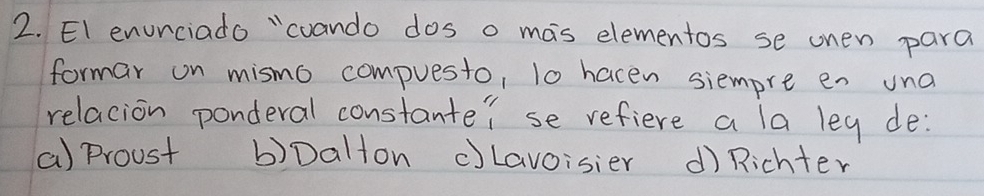 2. El enunciado "cuando dos o más elementos se unen para
formar un mismo compuesto, lo hacen siempre en una
relación ponderal constante", se refiere a la ley de:
a) Proust b) Dalton c) Lavoisier d) Richter